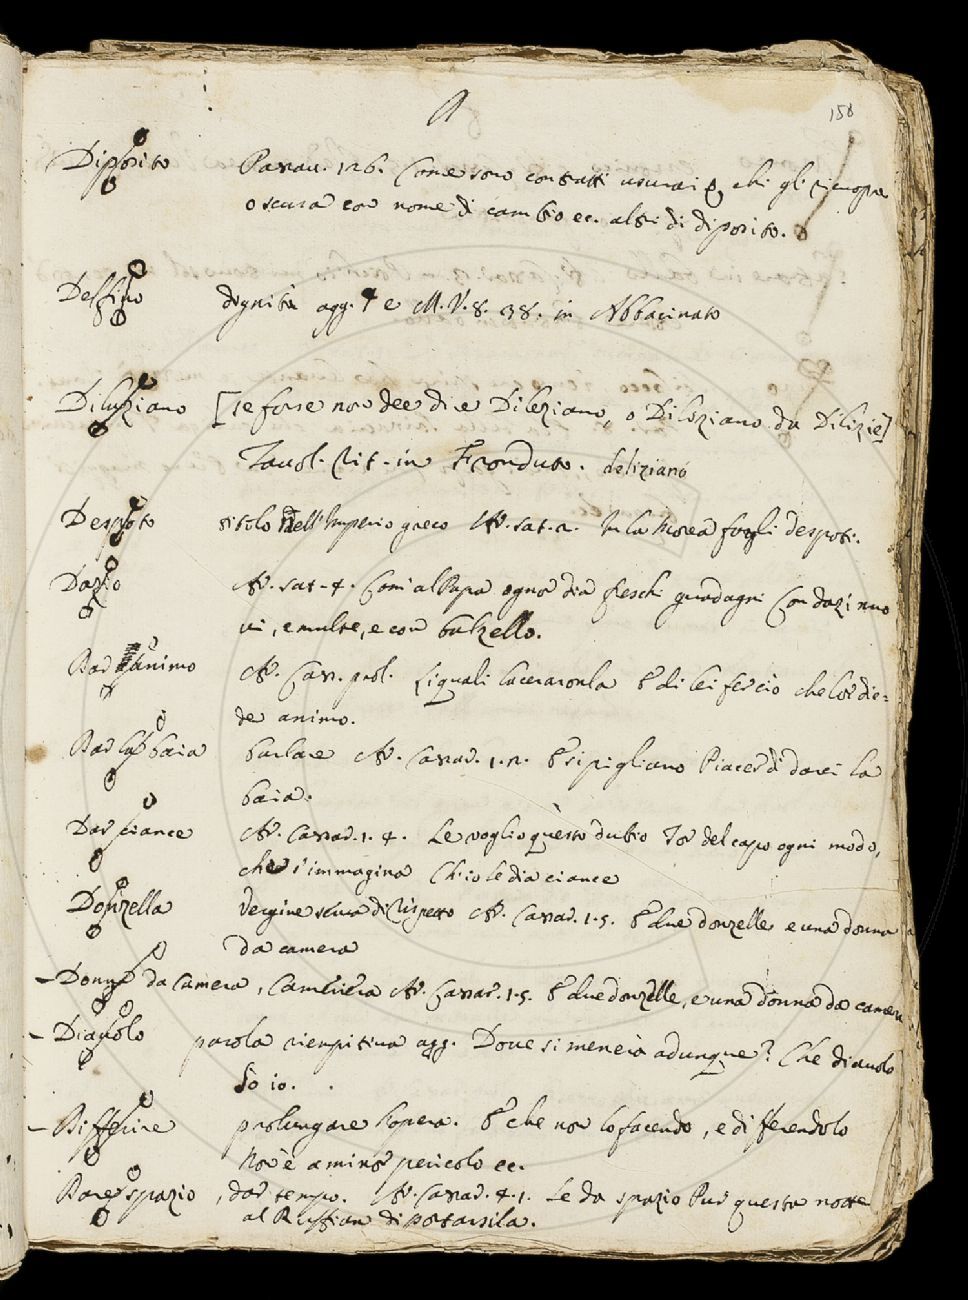 158
Diposito Davan. 126. Come sono contratti usurai che gli ricuopra
oscura con nome di cambio ec. altri di diposito.
Delfino dignità agg. e M. V. 8. 38. in Abbacinato
Diluziano [se forse non dee dire Dileziano, o Diliziano da Dilizie]
Tavol. Rit. in Fronduto. deliziano
Despoto titolo dell'Imperio greco Ar. sat. 2. la Morea fogli despoti.
Dazio Ar. sat. 4. Com'al Papa ognor dia freschi guadagni Con dazi nuo
vi, e multe, e con balzello.
Dar animo Ar. prol. Li quali laceraronla E di lei fer ciò che lor die-
de animo.
Dar la baia burlare Ar. Cassar. 1. 2. E ripigliano Piacer di darci la
baia.
Dar ciance Ar. Cassar. 1. 4. Le voglio questo dubio Tor del capo ogni modo,
che s'immagina Ch'io le dia ciance
Donzella Vergine serva di rispetto Ar. Cassar. 1. 5. E due donzelle e una donna
da camera
- Donna da Camera, Cameriera Ar. Cassar. 1. 5. E due donzelle, e una donna da camera
- Diavolo parola riempitiva agg. Dove si menerà adunque? Che diavolo
so io.
- Differire prolungare l'opera. E che non lo facendo, e differendolo
Non è a minor pericolo ec.
Dare spazio, dar tempo. Ar. Cassar. 4. 1. Le da spazio Pur questa notte
al Ruffian di portarsila.